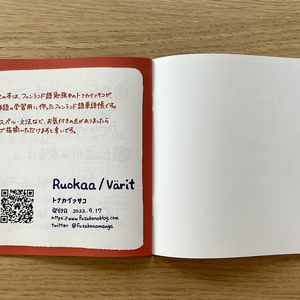 この本は、フィンランド語勉強中のトナカイッサコが、
単語の学習用に作ったフィンランド語単語帳です。
スペル・文法など、お気付きの点がありましたら
ご指摘いただけますと幸いです。
Ruokaa / Värit
トナカイッサコ
発行日 2022.9.17
https://www.fusakonoblog.com
twitter @fusakonomanga